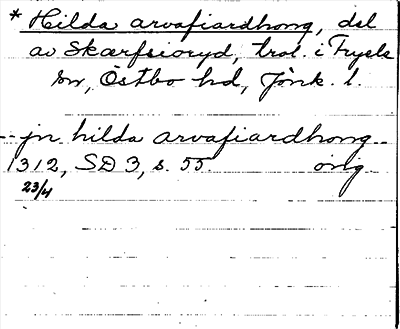 * Hilda arvafiardhong, del
av Skærfsioryd, trol. i Fryele
sn, Östbo hd, Jönk. l.
jn hilda arvafiardhong
1312, SD 3, s. 55 orig
23/4